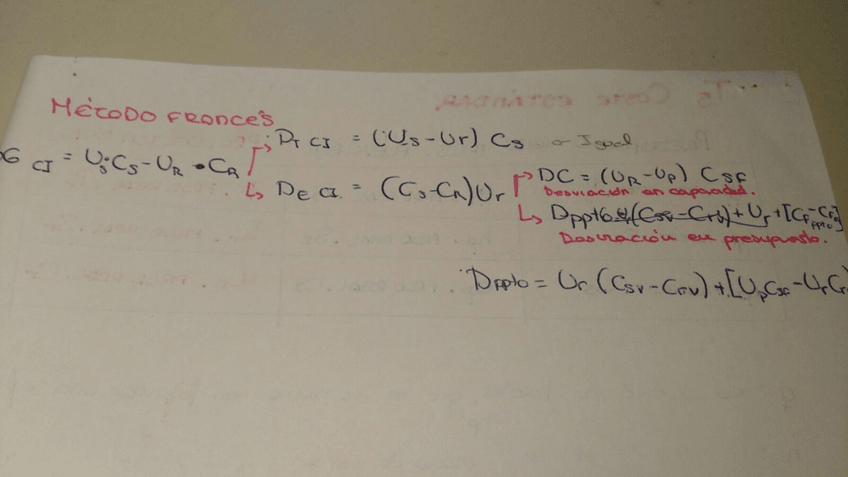 MÉTODO FRANCÉS
DG CI = Us·Cs - UR · CR
DT CI = (Us - Ur) Cs → Igual
DE CI = (Cs - CR) Ur
DC = (UR - UP) CSF
Desviación en capacidad.
Dppto = (Csv - Crv) + Ur + [CF ppto - CF]
Desviación en presupuesto.
Dppto = Ur (Csv - Crv) + [UpCsf - UrCr